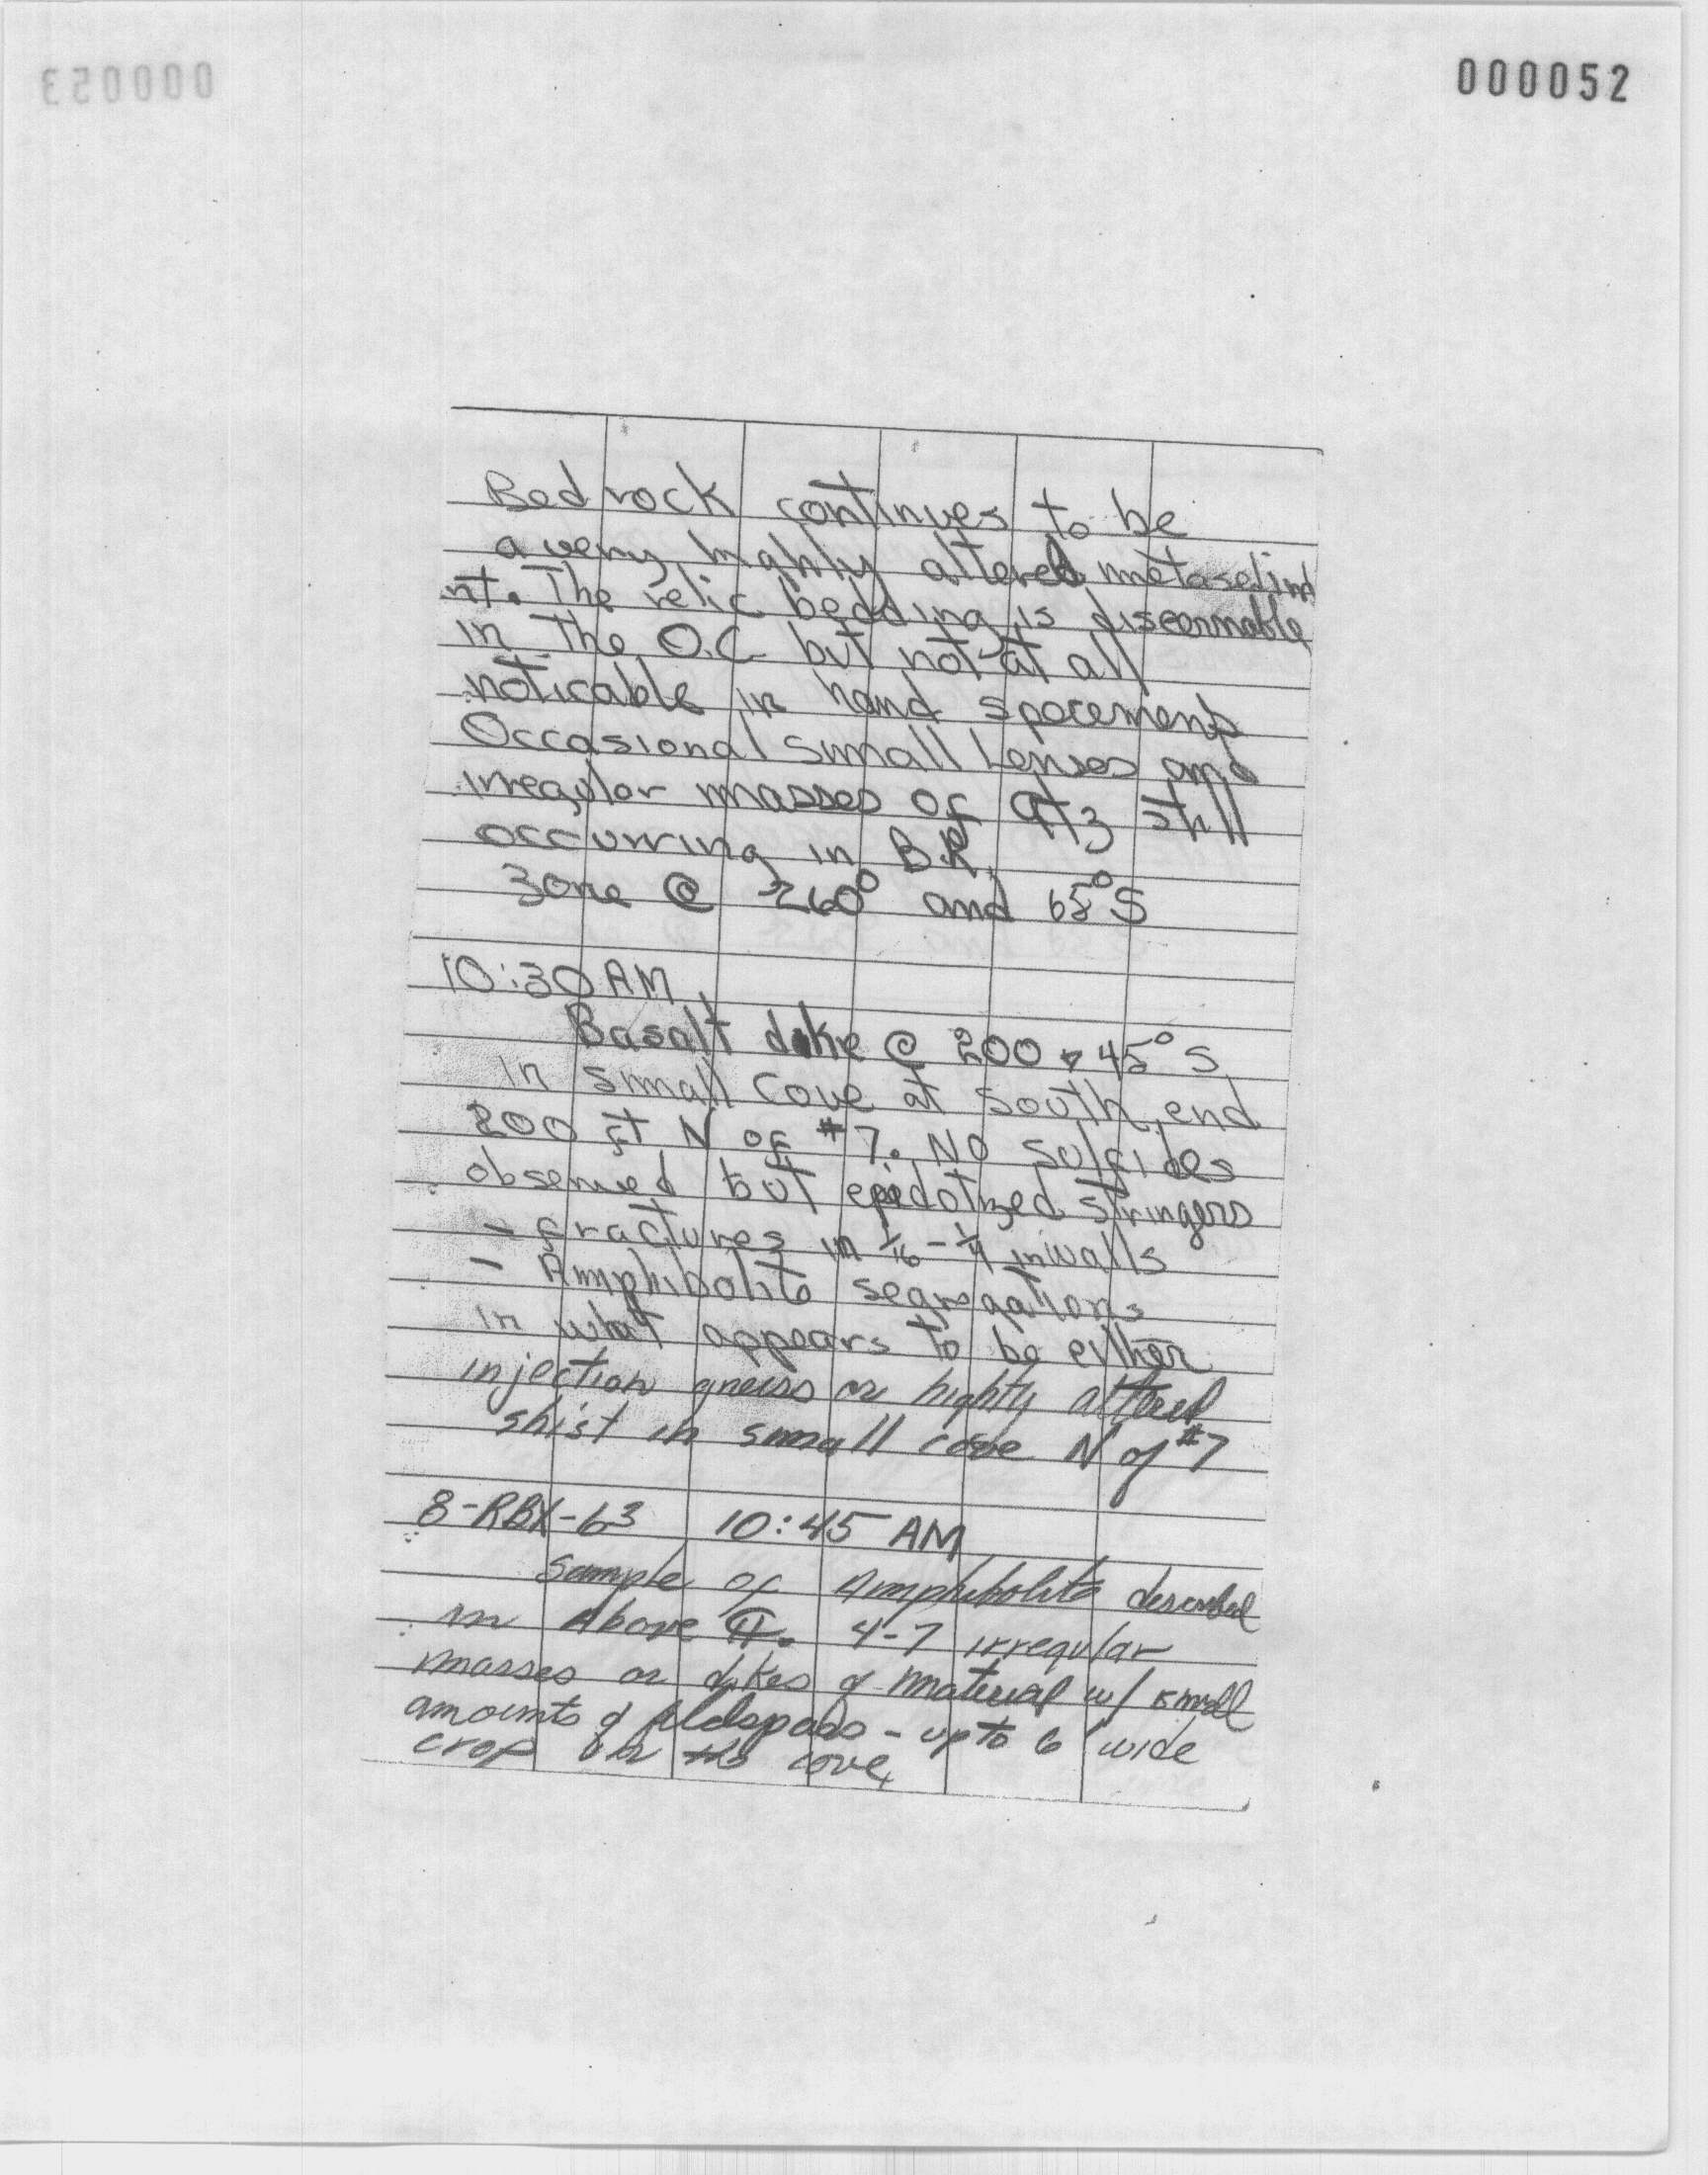 000052
000053
Bedrock continues to be
a very highly altered metasedim
nt. The relic bedding is discernable
in The O.C. but not at all
noticable in hand specemens
Occasional small Lenses and
irregular masses of qtz still
occurring in B.R.
Zone @ 260° and 65° S
10:30 AM
Basalt dike @ 200 & 45° S
in small cove at south end
200 ft N of #7. No sulfides
observed but epidotized stringers
- fractures in 1/16 - 1/4 in walls
- Amphibolite segregations
in what appears to be either
injection gneiss or highly altered
shist in small cove N of #7
8-RBX-63 10:45 AM
Sample of Amphibolite described
in Above ¶. 4-7 irregular
masses or dikes of material w/ small
amounts of feldspars - up to 6' wide
crop in the cove.